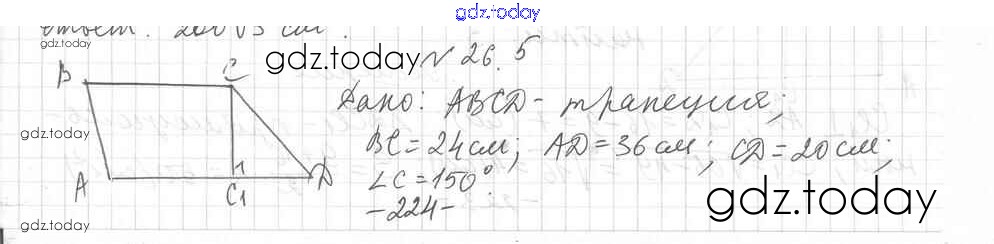 gdz.today
Ответ: 200√3 см².
gdz.today
gdz.today
№ 26.5
B
C
Дано: ABCD - трапеция;
gdz.today
BC = 24 см; AD = 36 см; CD = 20 см;
A
C1
D
∠C = 150°.
-224-
gdz.today
gdz.today